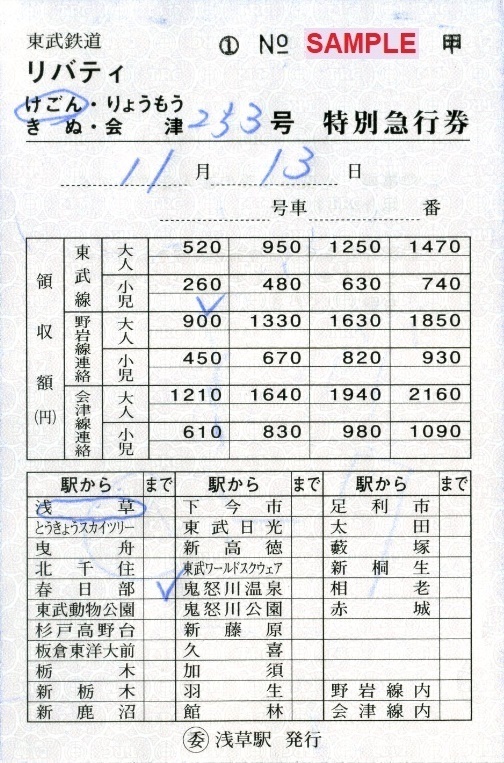 東武鉄道 ① No SAMPLE 甲
リバティ
けごん・りょうもう
きぬ・会津 233号 特別急行券
11月 13日
号車 番
領収額(円)
東武線 大人 520 950 1250 1470
小児 260 480 630 740
野岩線連絡 大人 900 1330 1630 1850
小児 450 670 820 930
会津線連絡 大人 1210 1640 1940 2160
小児 610 830 980 1090
駅から まで 駅から まで 駅から まで
浅草 下今市 足利市
とうきょうスカイツリー 東武日光 太田
曳舟 新高徳 藪塚
北千住 東武ワールドスクウェア 新桐生
春日部 鬼怒川温泉 相老
東武動物公園 鬼怒川公園 赤城
杉戸高野台 新藤原
板倉東洋大前 久喜
栃木 加須
新栃木 羽生 野岩線内
新鹿沼 館林 会津線内
委 浅草駅 発行